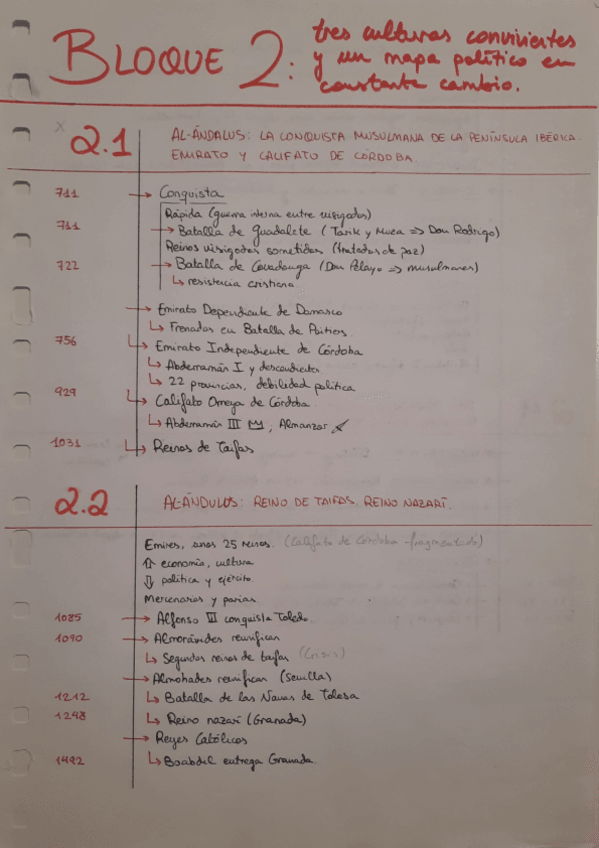 BLOQUE 2: tres culturas convivientes
y un mapa político en
constante cambio.
2.1 AL-ÁNDALUS: LA CONQUISTA MUSULMANA DE LA PENÍNSULA IBÉRICA.
EMIRATO Y CALIFATO DE CÓRDOBA.
711 → Conquista
Rápida (guerra interna entre visigodos)
711 → Batalla de Guadalete (Tarik y Muza => Don Rodrigo)
Reinos visigodos sometidos (tratados de paz)
722 → Batalla de Covadonga (Don Pelayo => musulmanes)
↳ resistencia cristiana
→ Emirato Dependiente de Damasco
↳ Frenados en Batalla de Poitiers
756 ↳ Emirato Independiente de Córdoba
↳ Abderramán I y descendientes
↳ 22 provincias, debilidad política
929 ↳ Califato Omeya de Córdoba
↳ Abderramán III, Almanzor
1031 ↳ Reinos de Taifas
2.2 AL-ÁNDULUS: REINO DE TAIFAS. REINO NAZARÍ.
Emires, unos 25 reinos. (Califato de Córdoba fragmentado)
⇑ economía, cultura
⇓ política y ejército
Mercenarios y parias
1085 → Alfonso VI conquista Toledo
1090 → Almorávides reunifican
↳ Segundos reinos de taifas (Crisis)
→ Almohades reunifican (Sevilla)
1212 ↳ Batalla de las Navas de Tolosa
1248 ↳ Reino nazarí (Granada)
→ Reyes Católicos
1492 ↳ Boabdil entrega Granada.